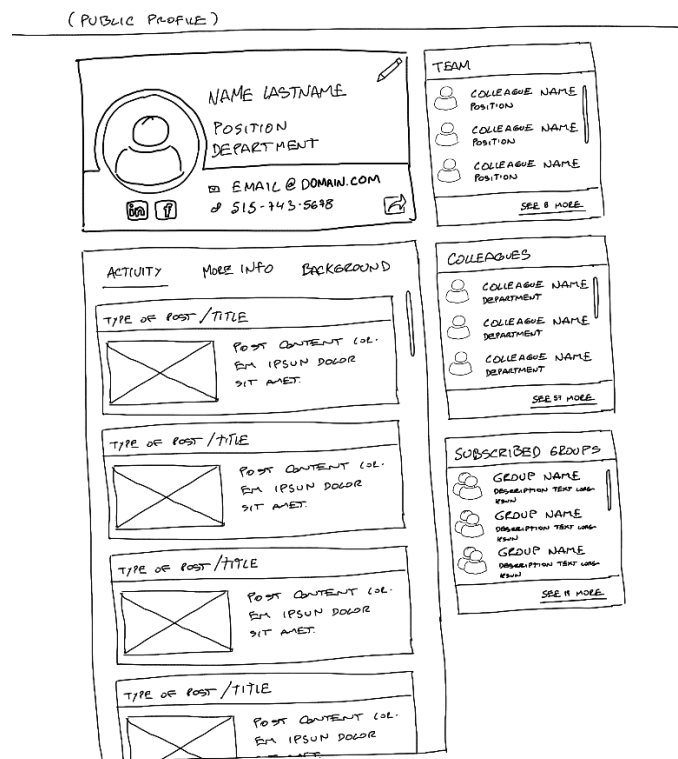 (PUBLIC PROFILE)
NAME LASTNAME
POSITION
DEPARTMENT
EMAIL@DOMAIN.COM
515-743-5678
in f
ACTIVITY MORE INFO BACKGROUND
TYPE OF POST/TITLE
POST CONTENT LOR-
EM IPSUN DOLOR
SIT AMET.
TYPE OF POST/TITLE
POST CONTENT LOR-
EM IPSUN DOLOR
SIT AMET.
TYPE OF POST/TITLE
POST CONTENT LOR-
EM IPSUN DOLOR
SIT AMET.
TYPE OF POST/TITLE
POST CONTENT LOR-
EM IPSUN DOLOR
TEAM
COLLEAGUE NAME
POSITION
COLLEAGUE NAME
POSITION
COLLEAGUE NAME
POSITION
SEE 8 MORE
COLLEAGUES
COLLEAGUE NAME
DEPARTMENT
COLLEAGUE NAME
DEPARTMENT
COLLEAGUE NAME
DEPARTMENT
SEE 51 MORE
SUBSCRIBED GROUPS
GROUP NAME
DESCRIPTION TEXT
GROUP NAME
DESCRIPTION TEXT
GROUP NAME
DESCRIPTION TEXT
SEE 11 MORE